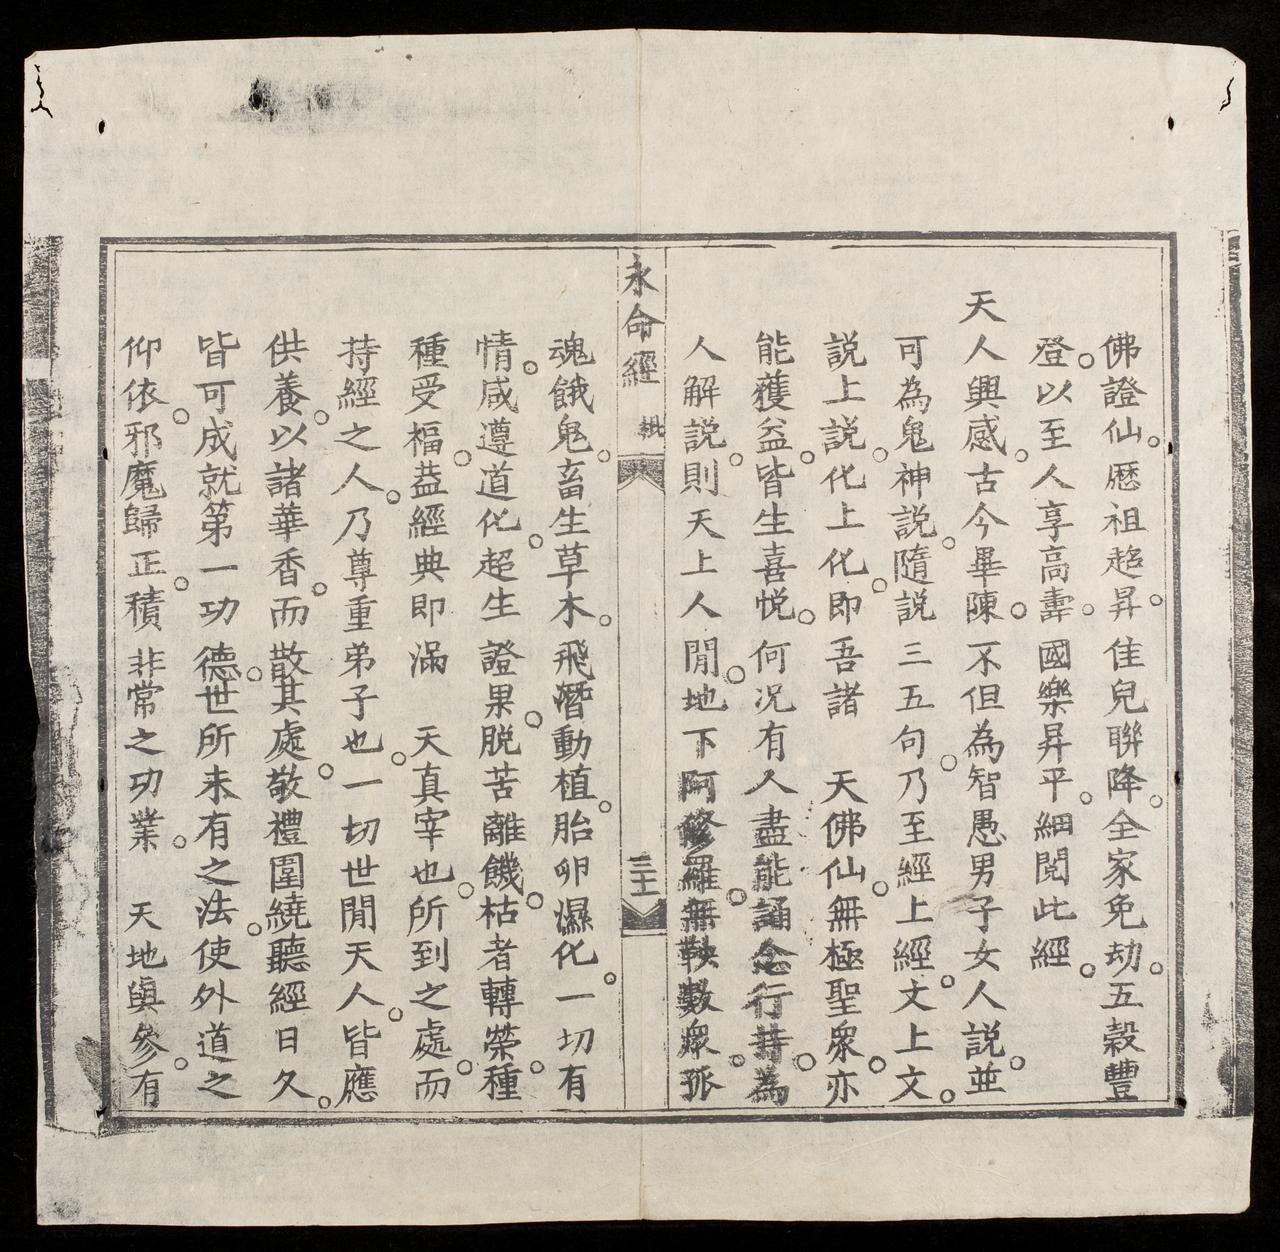 佛證仙。歷祖超昇。佳兒聯降。全家免劫。五穀豐
登。以至人享高壽。國樂昇平。細閱此經。
天人興感。古今畢陳。不但為智愚男子女人說。並
可為鬼神說。隨說三五句。乃至經上經。文上文。
説上説。化上化。即吾諸 天佛仙。無極聖衆。亦
能獲益。皆生喜悦。何况有人盡能誦念行持。為
人解説。則天上人間。地下阿修羅。無鞅數衆。孤
永命經 三十一
魂餓鬼。畜生草木。飛潛動植。胎卵濕化。一切有
情。咸遵道化。超生證果。脱苦離饑。枯者轉榮。種
種受福。葢經典即滿 天真宰也。所到之處。而
持經之人。乃尊重弟子也。一切世間天人。皆應
供養。以諸華香。而散其處。敬禮圍繞。聽經日久。
皆可成就第一功德。世所未有之法。使外道之
仰依。邪魔歸正。積非常之功業。 天地與參。有